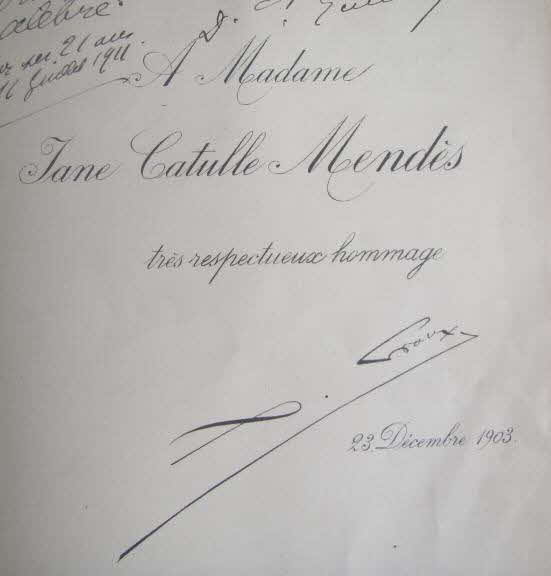 célèbre.
21 ans
Juillet 1911
D.
A Madame
Jane Catulle Mendès
très respectueux hommage
23. Décembre 1903.